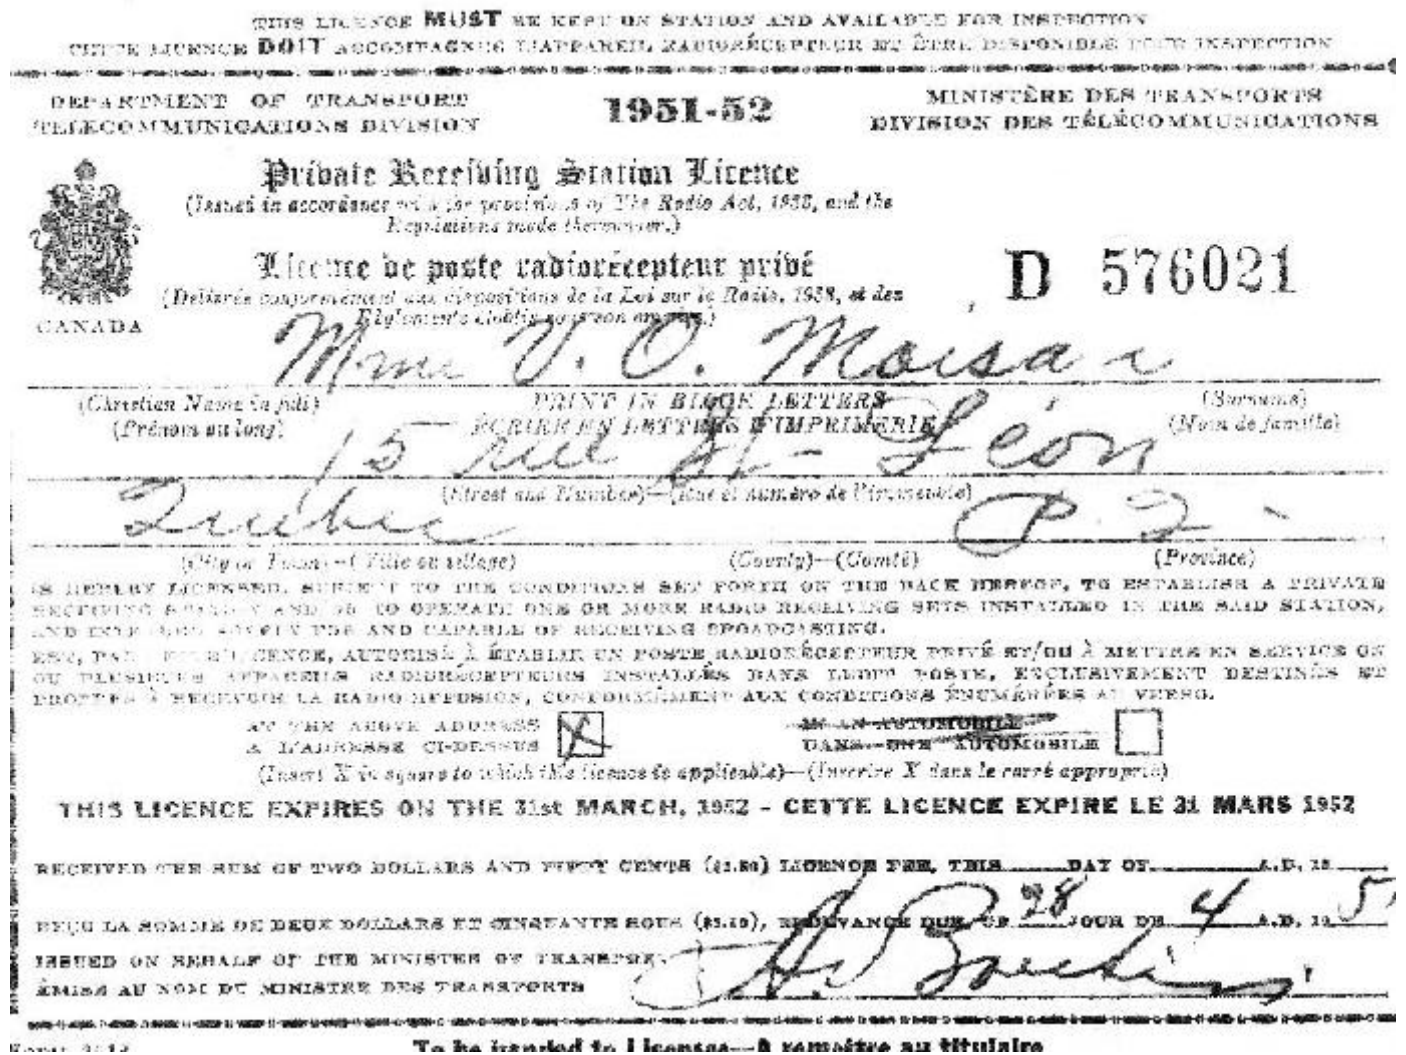 THIS LICENCE MUST BE KEPT ON STATION AND AVAILABLE FOR INSPECTION
CETTE LICENCE DOIT ACCOMPAGNER L'APPAREIL RADIORÉCEPTEUR ET ÊTRE DISPONIBLE POUR INSPECTION
DEPARTMENT OF TRANSPORT
TELECOMMUNICATIONS DIVISION
1951-52
MINISTÈRE DES TRANSPORTS
DIVISION DES TÉLÉCOMMUNICATIONS
Private Receiving Station Licence
(Issued in accordance with the provisions of The Radio Act, 1938, and the
Regulations made thereunder.)
Licence de poste radiorécepteur privé
(Délivrée conformément aux dispositions de la Loi sur la Radio, 1938, et des
Règlements établis sous son empire.)
D 576021
CANADA
Mme V. O. Moisan
(Christian Name in full)
(Prénom au long)
PRINT IN BLOCK LETTERS
ÉCRIRE EN LETTRES D'IMPRIMERIE
(Surname)
(Nom de famille)
15 rue St-Léon
(Street and Number)—(Rue et numéro de l'immeuble)
Québec P. Q.
(City or Town)—(Ville ou village) (County)—(Comté) (Province)
IS HEREBY LICENSED, SUBJECT TO THE CONDITIONS SET FORTH ON THE BACK HEREOF, TO ESTABLISH A PRIVATE
RECEIVING STATION AND/OR TO OPERATE ONE OR MORE RADIO RECEIVING SETS INSTALLED IN THE SAID STATION,
AND INTENDED SOLELY FOR AND CAPABLE OF RECEIVING BROADCASTING.
EST, PAR LICENCE, AUTORISÉ À ÉTABLIR UN POSTE RADIORÉCEPTEUR PRIVÉ ET/OU À METTRE EN SERVICE UN
OU PLUSIEURS APPAREILS RADIORÉCEPTEURS INSTALLÉS DANS LEDIT POSTE, EXCLUSIVEMENT DESTINÉS ET
PROPRES À RECEVOIR LA RADIODIFFUSION, CONFORMÉMENT AUX CONDITIONS ÉNUMÉRÉES AU VERSO.
AT THE ABOVE ADDRESS
A L'ADRESSE CI-DESSUS
X
IN AN AUTOMOBILE
DANS UNE AUTOMOBILE
(Insert X in square to which this licence is applicable)—(Inscrire X dans le carré approprié)
THIS LICENCE EXPIRES ON THE 31st MARCH, 1952 - CETTE LICENCE EXPIRE LE 31 MARS 1952
RECEIVED THE SUM OF TWO DOLLARS AND FIFTY CENTS ($2.50) LICENCE FEE, THIS DAY OF A.D. 19
REÇU LA SOMME DE DEUX DOLLARS ET CINQUANTE SOUS ($2.50), REDEVANCE DUE CE 28 JOUR DE 4 A.D. 19 5
ISSUED ON BEHALF OF THE MINISTER OF TRANSPORT
ÉMISE AU NOM DU MINISTRE DES TRANSPORTS
To be handed to Licensee—À remettre au titulaire